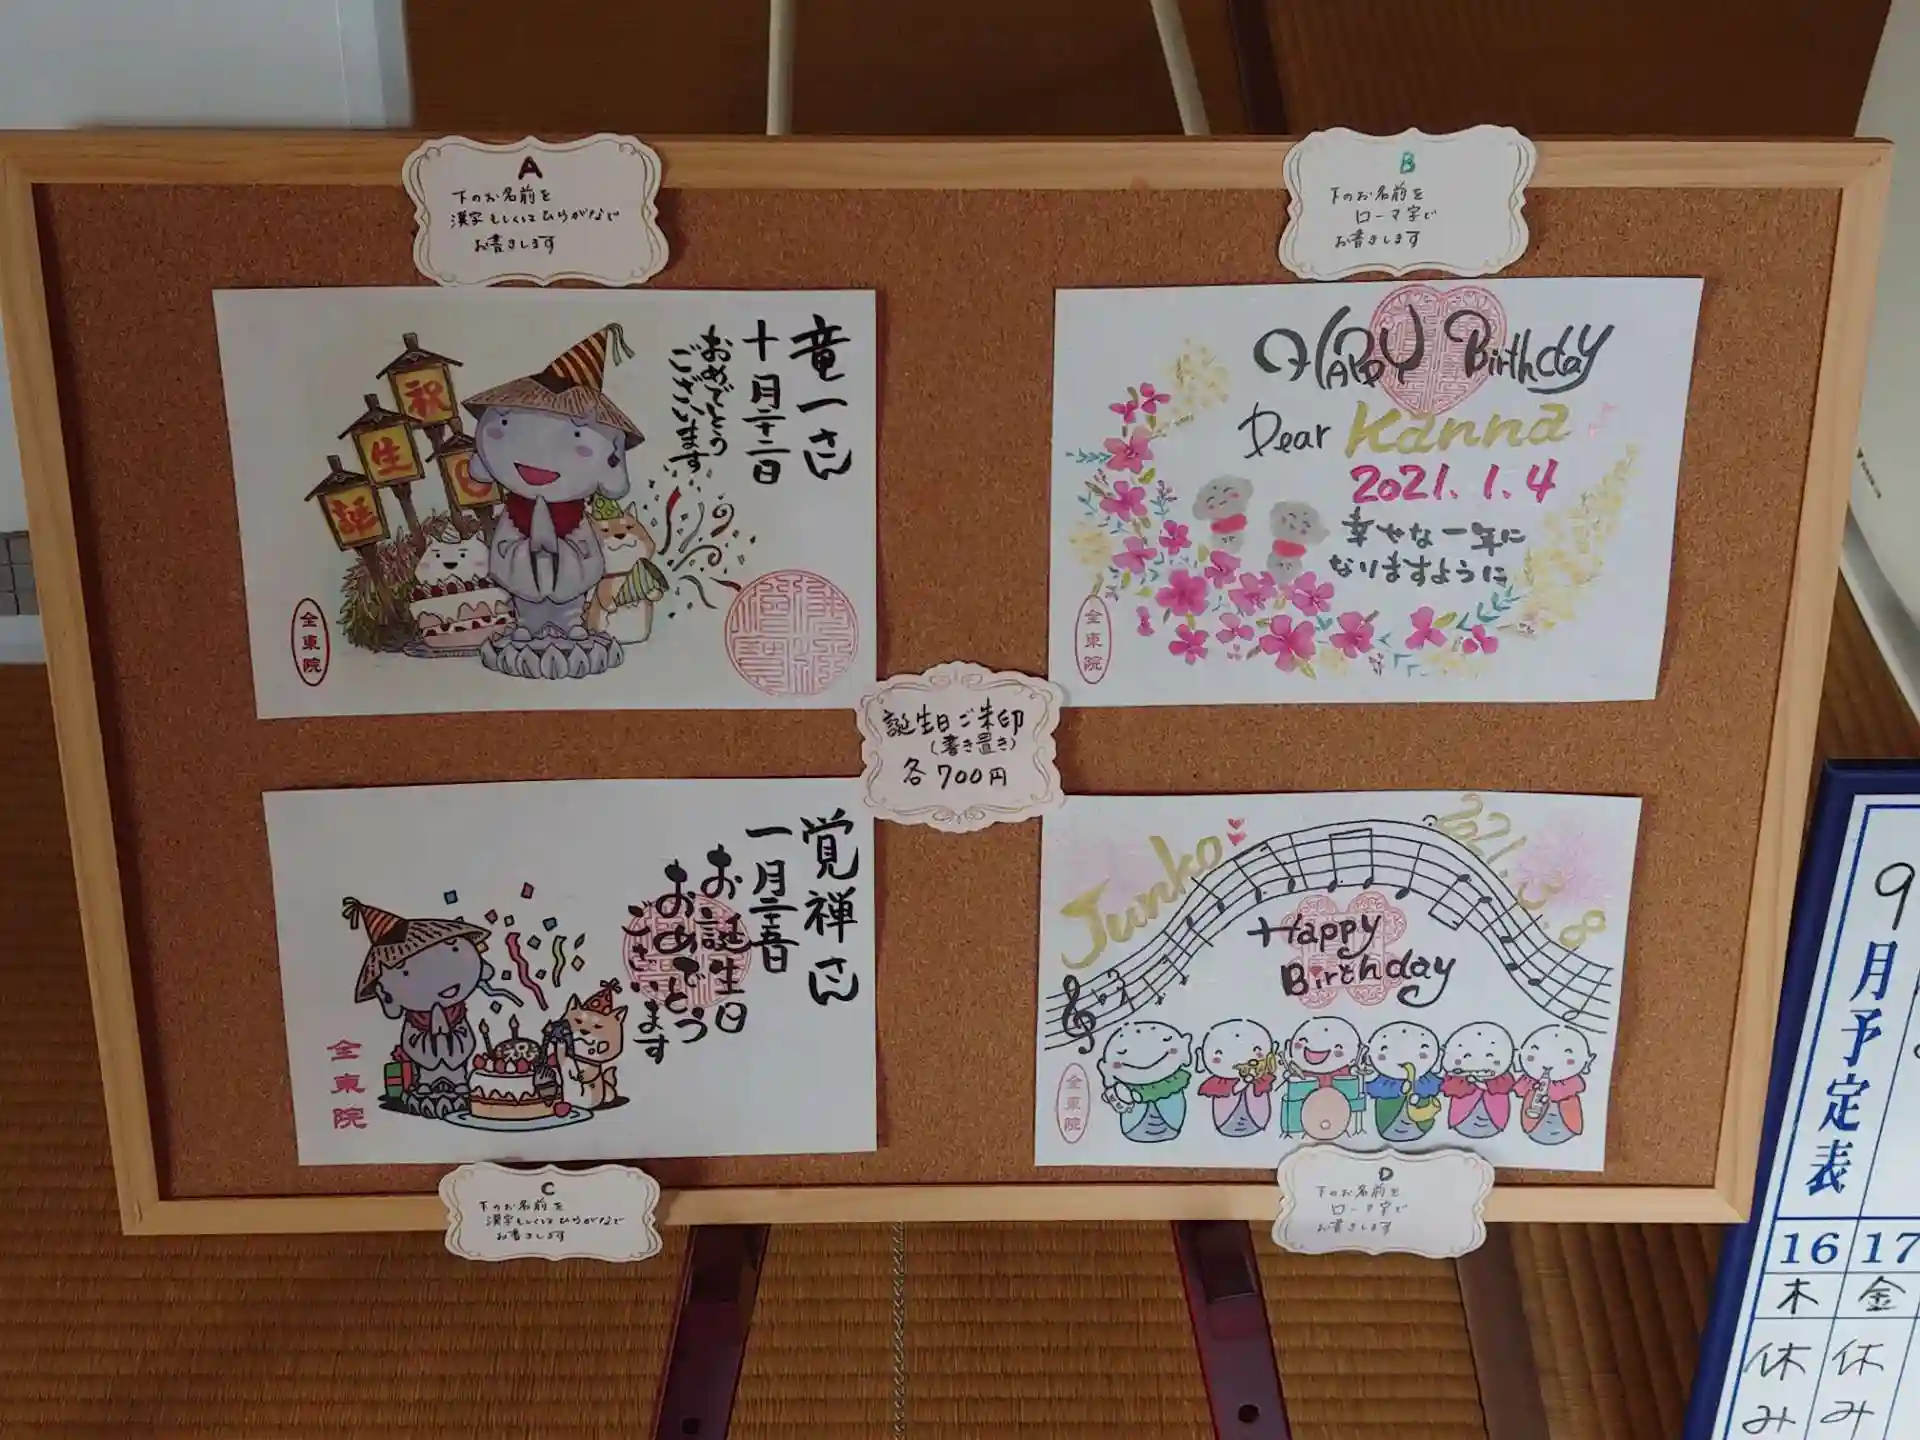 A
下のお名前を
漢字もしくはひらがなで
お書きします
B
下のお名前を
ローマ字で
お書きします
竜一さん
十月二十二日
おめでとう
ございます
祝
生
誕
全東院
HAPPY Birthday
Dear Kanna
2021.1.4
幸せな一年に
なりますように
全東院
誕生日ご朱印
(書き置き)
各700円
覚禅さん
お誕生日
おめでとう
ございます
祝
全東院
Junko
Happy
Birthday
全東院
C
下のお名前を
漢字もしくはひらがなで
お書きします
D
下のお名前を
ローマ字で
お書きします
9
月予定表
16 17
木 金
休み 休み